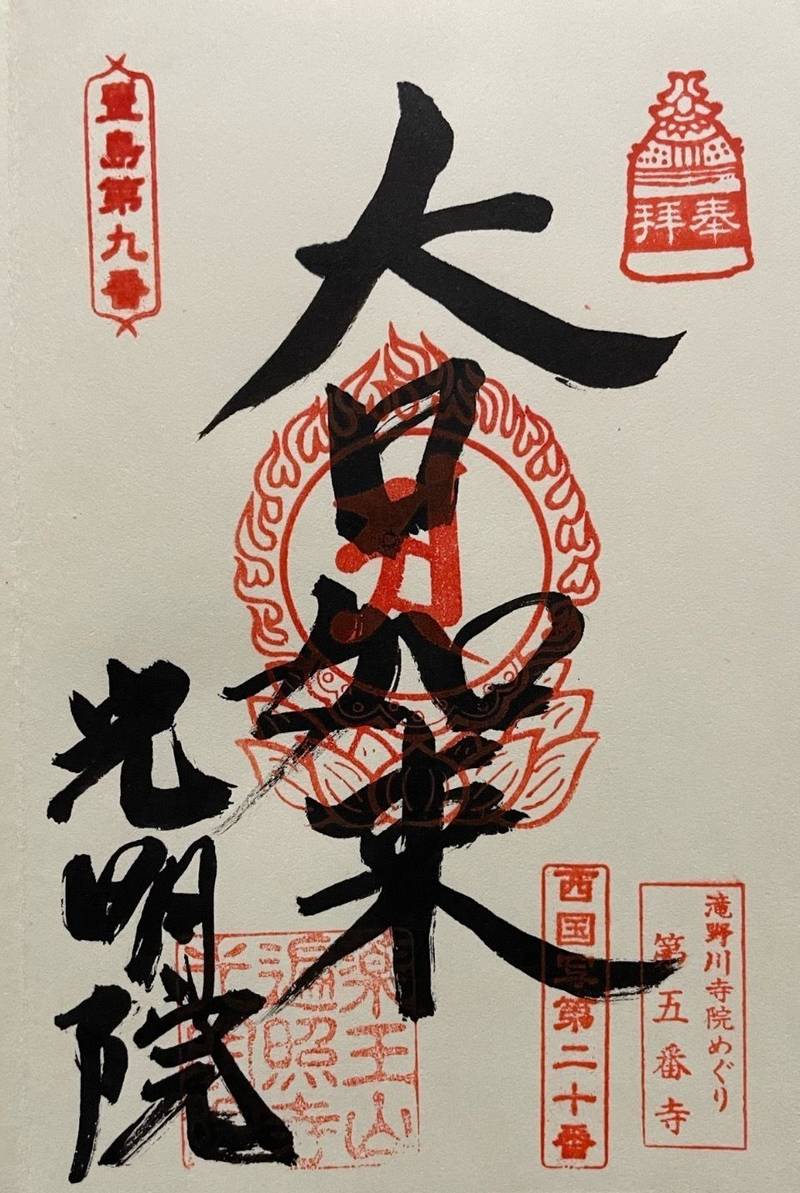 奉拝
滝野川寺院めぐり
第五番寺
西国写第二十番
大日如来
薬王山
遍照寺
豊島第九番
光明院